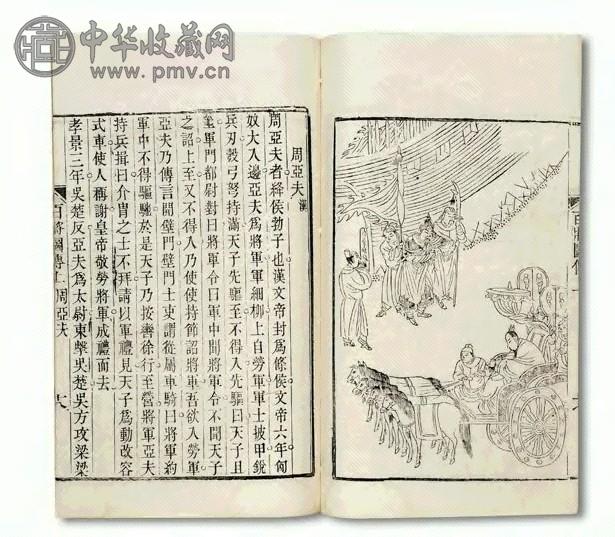 中华收藏网
www.pmv.cn
百將圖傳
周亞夫漢
周亞夫者絳侯勃子也漢文帝封爲條侯文帝六年匈
奴大入邊亞夫爲將軍軍細柳上自勞軍軍士披甲銳
兵刃彀弓弩持滿天子先驅至不得入先驅曰天子且
至軍門都尉對曰將軍令曰軍中聞將軍令不聞天子
之詔上至又不得入乃使使持節詔將軍吾欲入勞軍
亞夫乃傳言開壁門壁門士吏謂從屬車騎曰將軍約
軍中不得驅馳於是天子乃按轡徐行至營將軍亞夫
持兵揖曰介胄之士不拜請以軍禮見天子爲動改容
式車使人稱謝皇帝敬勞將軍成禮而去
孝景三年吳楚反亞夫爲太尉東擊吳楚吳方攻梁梁
百將圖傳上 周亞夫 十八